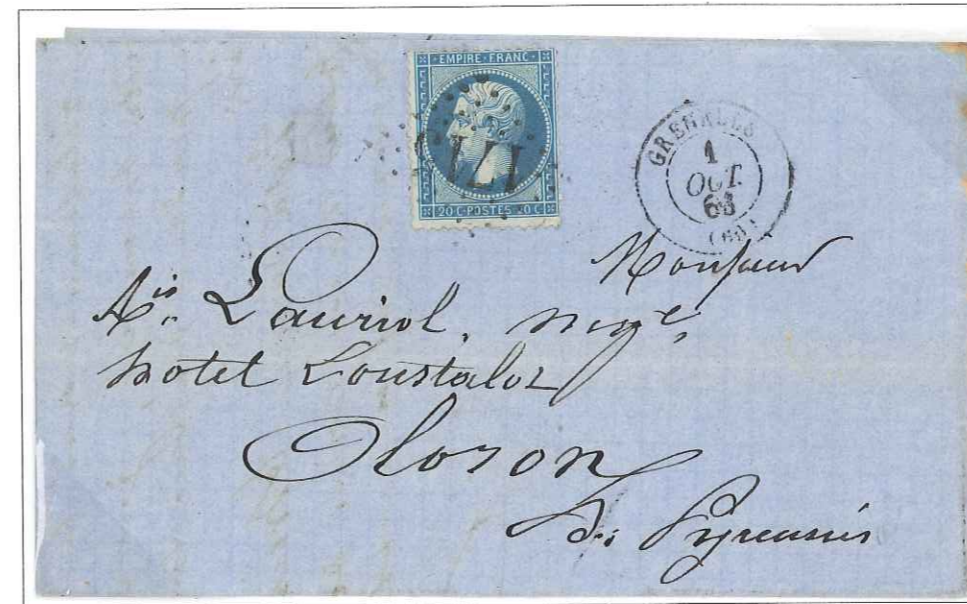 EMPIRE·FRANC·
20 C·POSTES·20 C
1
OCT.
Monsieur
Lauriol, negt,
hotel Loustalot
Oloron
Bs. Pyrenées